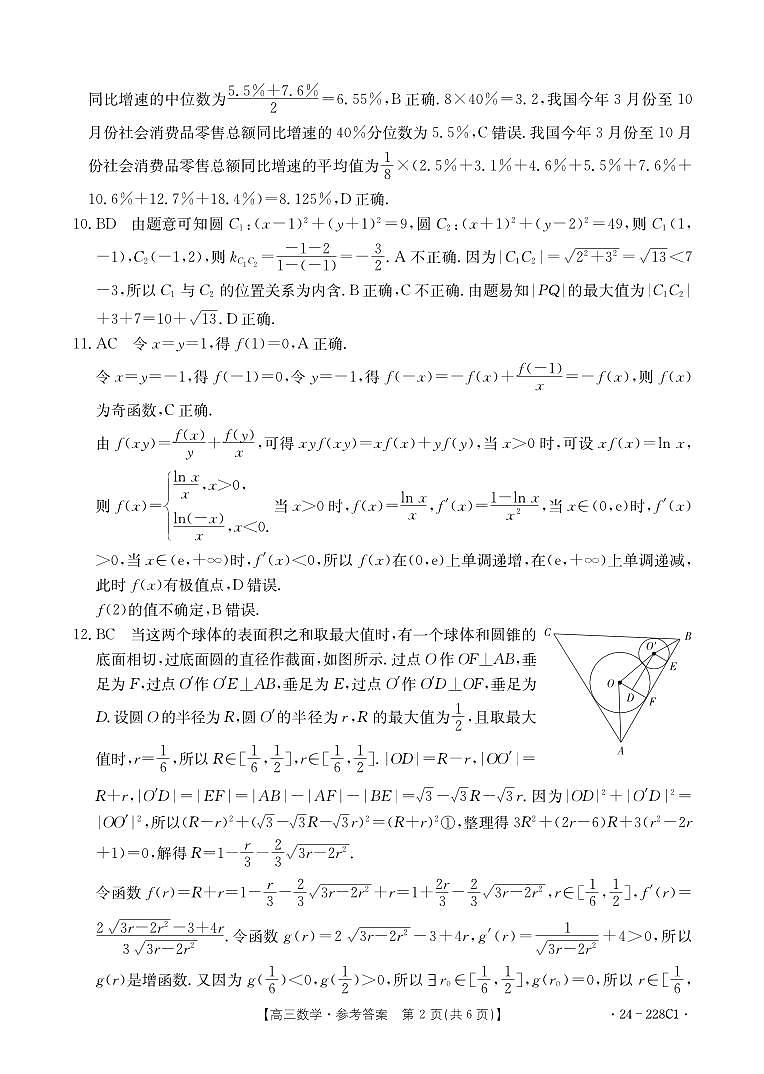 同比增速的中位数为$\frac{5.5\%+7.6\%}{2}$=6.55%,B正确.8×40%=3.2,我国今年3月份至10
月份社会消费品零售总额同比增速的40%分位数为5.5%,C错误.我国今年3月份至10月
份社会消费品零售总额同比增速的平均值为$\frac{1}{8}$×(2.5%+3.1%+4.6%+5.5%+7.6%+
10.6%+12.7%+18.4%)=8.125%,D正确.
10. BD 由题意可知圆$C_1$:$(x-1)^2+(y+1)^2=9$,圆$C_2$:$(x+1)^2+(y-2)^2=49$,则$C_1(1,$
$-1),C_2(-1,2)$,则$k_{C_1C_2}=\frac{-1-2}{1-(-1)}=-\frac{3}{2}$.A不正确.因为$|C_1C_2|=\sqrt{2^2+3^2}=\sqrt{13}<7$
$-3$,所以$C_1$与$C_2$的位置关系为内含.B正确,C不正确.由题易知$|PQ|$的最大值为$|C_1C_2|$
$+3+7=10+\sqrt{13}$.D正确.
11. AC 令$x=y=1$,得$f(1)=0$,A正确.
令$x=y=-1$,得$f(-1)=0$,令$y=-1$,得$f(-x)=-f(x)+\frac{f(-1)}{x}=-f(x)$,则$f(x)$
为奇函数,C正确.
由$f(xy)=\frac{f(x)}{y}+\frac{f(y)}{x}$,可得$xyf(xy)=xf(x)+yf(y)$,当$x>0$时,可设$xf(x)=\ln x$,
则$f(x)=\begin{cases}\frac{\ln x}{x},x>0,\\\frac{\ln(-x)}{x},x<0.\end{cases}$当$x>0$时,$f(x)=\frac{\ln x}{x}$,$f'(x)=\frac{1-\ln x}{x^2}$,当$x\in(0,e)$时,$f'(x)$
$>0$,当$x\in(e,+\infty)$时,$f'(x)<0$,所以$f(x)$在$(0,e)$上单调递增,在$(e,+\infty)$上单调递减,
此时$f(x)$有极值点,D错误.
$f(2)$的值不确定,B错误.
12. BC 当这两个球体的表面积之和取最大值时,有一个球体和圆锥的
底面相切,过底面圆的直径作截面,如图所示.过点O作$OF\perp AB$,垂
足为F,过点O′作$O'E\perp AB$,垂足为E,过点O′作$O'D\perp OF$,垂足为
D.设圆O的半径为R,圆O′的半径为r,R的最大值为$\frac{1}{2}$,且取最大
值时,$r=\frac{1}{6}$,所以$R\in[\frac{1}{6},\frac{1}{2}]$,$r\in[\frac{1}{6},\frac{1}{2}]$.$|OD|=R-r$,$|OO'|=$
C
B
O′
E
O
D
F
A
$R+r$,$|O'D|=|EF|=|AB|-|AF|-|BE|=\sqrt{3}-\sqrt{3}R-\sqrt{3}r$.因为$|OD|^2+|O'D|^2=$
$|OO'|^2$,所以$(R-r)^2+(\sqrt{3}-\sqrt{3}R-\sqrt{3}r)^2=(R+r)^2$①,整理得$3R^2+(2r-6)R+3(r^2-2r$
$+1)=0$,解得$R=1-\frac{r}{3}-\frac{2}{3}\sqrt{3r-2r^2}$.
令函数$f(r)=R+r=1-\frac{r}{3}-\frac{2}{3}\sqrt{3r-2r^2}+r=1+\frac{2r}{3}-\frac{2}{3}\sqrt{3r-2r^2}$,$r\in[\frac{1}{6},\frac{1}{2}]$,$f'(r)=$
$\frac{2\sqrt{3r-2r^2}-3+4r}{3\sqrt{3r-2r^2}}$.令函数$g(r)=2\sqrt{3r-2r^2}-3+4r$,$g'(r)=\frac{1}{\sqrt{3r-2r^2}}+4>0$,所以
$g(r)$是增函数.又因为$g(\frac{1}{6})<0$,$g(\frac{1}{2})>0$,所以$\exists r_0\in[\frac{1}{6},\frac{1}{2}]$,$g(r_0)=0$,所以$r\in[\frac{1}{6},$
【高三数学·参考答案 第2页(共6页)】
·24-228C1·